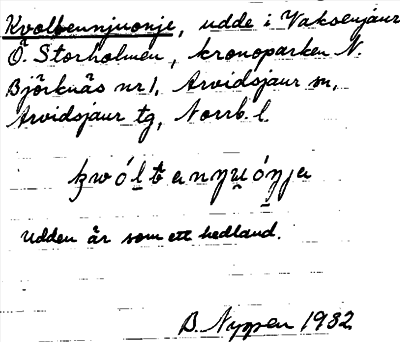 Kvolbennjuonje, udde i Vaksenjaur
Ö. Storholmen, kronoparken N.
Björknäs nr 1, Arvidsjaur sn,
Arvidsjaur tg, Norrb. l.
Udden är som ett hedland.
B. Nyppen 1982